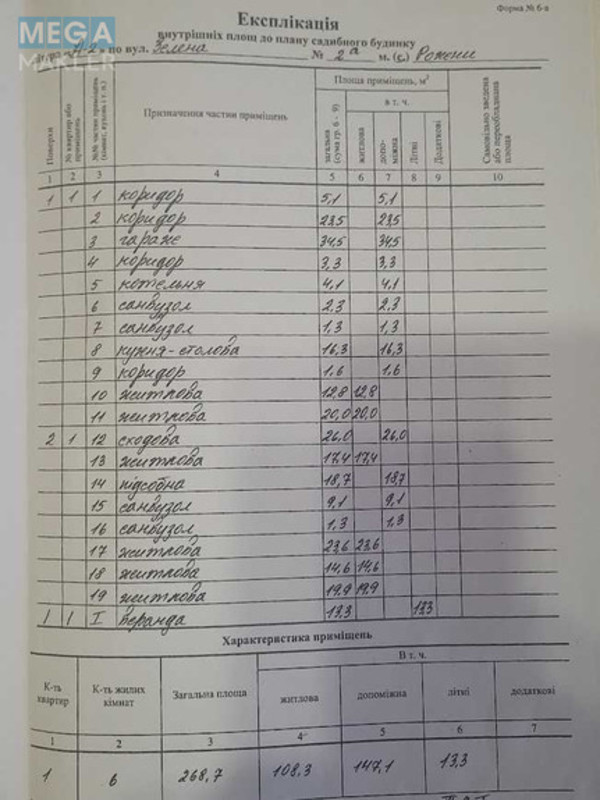 Форма № 6-в
MEGA
МАКЛЕР
Експлікація
внутрішніх площ до плану садибного будинку
"А-2" по вул. Зелена № 2а м. (с.) Рожени
Поверхи
№ квартир або приміщень
№№ частин приміщень (кімнат, кухонь і т. п.)
Призначення частин приміщень
Площа приміщень, м²
загальна (сума гр. 6 - 9)
в т. ч.
житлова
допоміжна
Літні
Додаткові
Самовільно зведена або переобладнана площа
1 2 3 4 5 6 7 8 9 10
1 1 1 коридор 5,1 5,1
2 коридор 23,5 23,5
3 гараж 34,5 34,5
4 коридор 3,3 3,3
5 котельня 4,1 4,1
6 санвузол 2,3 2,3
7 санвузол 1,3 1,3
8 кухня-столова 16,3 16,3
9 коридор 1,6 1,6
10 житлова 12,8 12,8
11 житлова 20,0 20,0
2 1 12 сходова 26,0 26,0
13 житлова 17,4 17,4
14 підсобна 18,7 18,7
15 санвузол 9,1 9,1
16 санвузол 1,3 1,3
17 житлова 23,6 23,6
18 житлова 14,6 14,6
19 житлова 19,9 19,9
1 1 I веранда 13,3 13,3
Характеристика приміщень
К-ть квартир
К-ть жилих кімнат
Загальна площа
В т. ч.
житлова
допоміжна
літні
додаткові
1 2 3 4 5 6 7
1 6 268,7 108,3 147,1 13,3